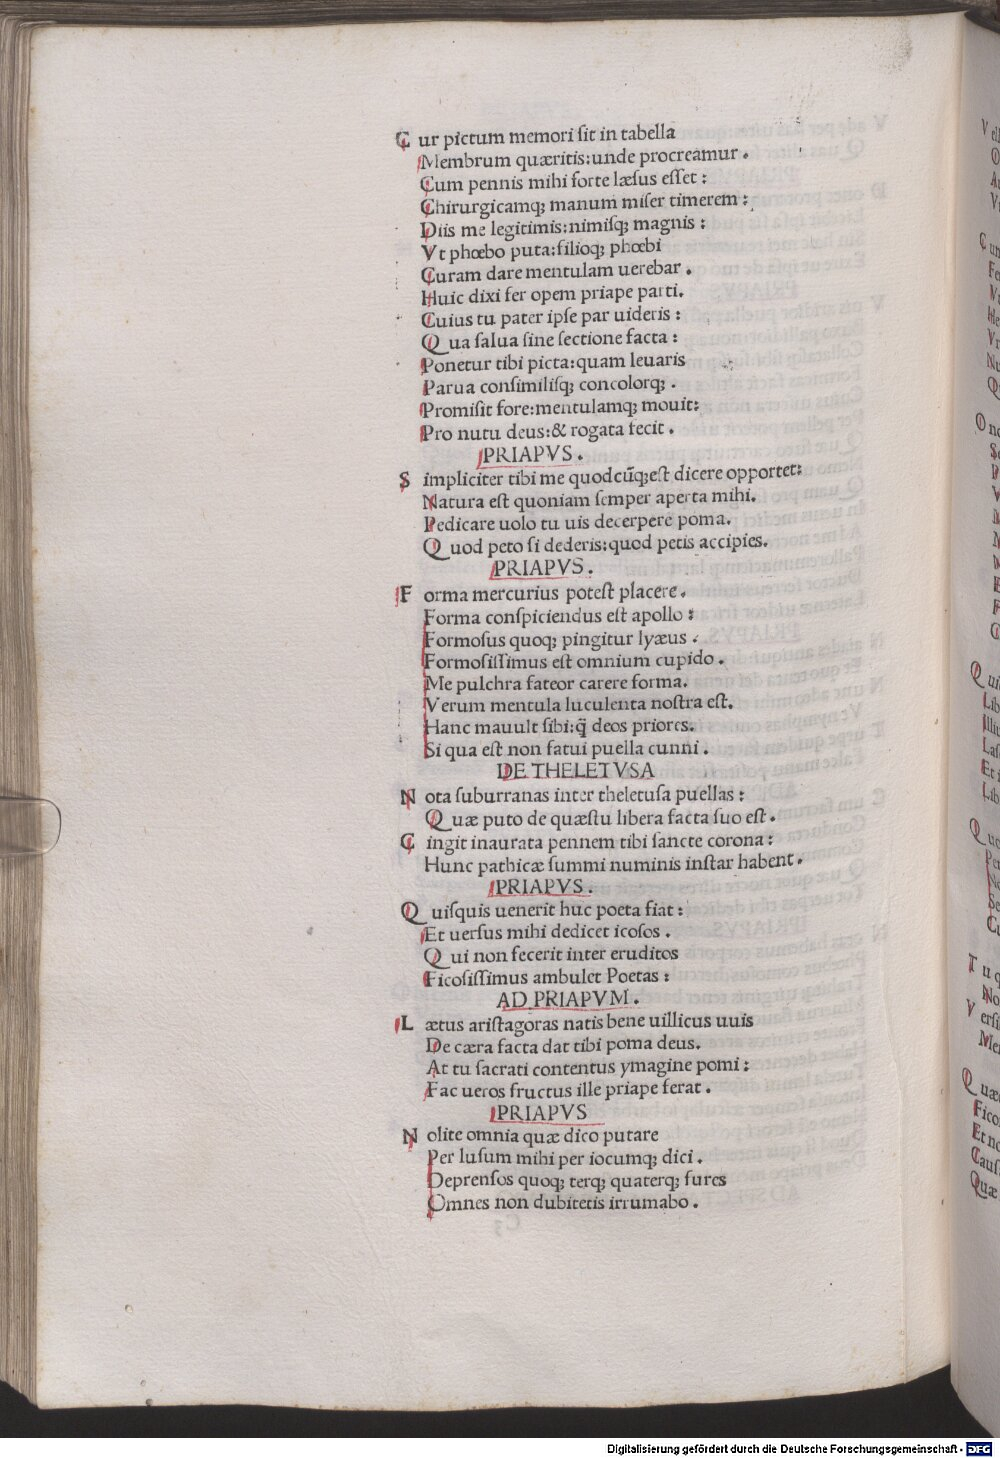 C ur pictum memori ſit in tabella
Membrum quæritis:unde procreamur .
Cum pennis mihi forte læſus eſſet :
Chirurgicamq; manum miſer timerem :
Diis me legitimis:nimiſq; magnis :
Vt phœbo puta:filioq; phœbi
Curam dare mentulam uerebar .
Huic dixi fer opem priape parti.
Cuius tu pater ipſe par uideris :
Q ua ſalua ſine ſectione facta :
Ponetur tibi picta:quam leuaris
Parua conſimiliſq; concolorq; .
Promiſit fore:mentulamq; mouit:
Pro nutu deus:& rogata fecit .
PRIAPVS .
S impliciter tibi me quodcūq;eſt dicere opportet:
Natura eſt quoniam ſemper aperta mihi.
Pedicare uolo tu uis decerpere poma.
Q uod peto ſi dederis:quod petis accipies.
PRIAPVS .
F orma mercurius poteſt placere .
Forma conſpiciendus eſt apollo :
Formoſus quoq; pingitur lyæus .
Formoſiſſimus eſt omnium cupido .
Me pulchra fateor carere forma.
Verum mentula luculenta noſtra eſt.
Hanc mauult ſibi:q̄ deos priores.
Si qua eſt non fatui puella cunni .
DE THELETVSA
N ota ſuburranas inter theletuſa puellas :
Q uæ puto de quæſtu libera facta ſuo eſt .
C ingit inaurata pennem tibi ſancte corona :
Hunc pathicæ ſummi numinis inſtar habent .
PRIAPVS .
Q uiſquis uenerit huc poeta fiat :
Et uerſus mihi dedicet icoſos .
Q ui non fecerit inter eruditos
Ficoſiſſimus ambulet Poetas :
AD PRIAPVM .
L ætus ariſtagoras natis bene uillicus uuis
De cæra facta dat tibi poma deus.
At tu ſacrati contentus ymagine pomi :
Fac ueros fructus ille priape ferat .
PRIAPVS
N olite omnia quæ dico putare
Per luſum mihi per iocumq; dici .
Deprenſos quoq; terq; quaterq; fures
Omnes non dubitetis irrumabo .
Digitalisierung gefördert durch die Deutsche Forschungsgemeinschaft - DFG